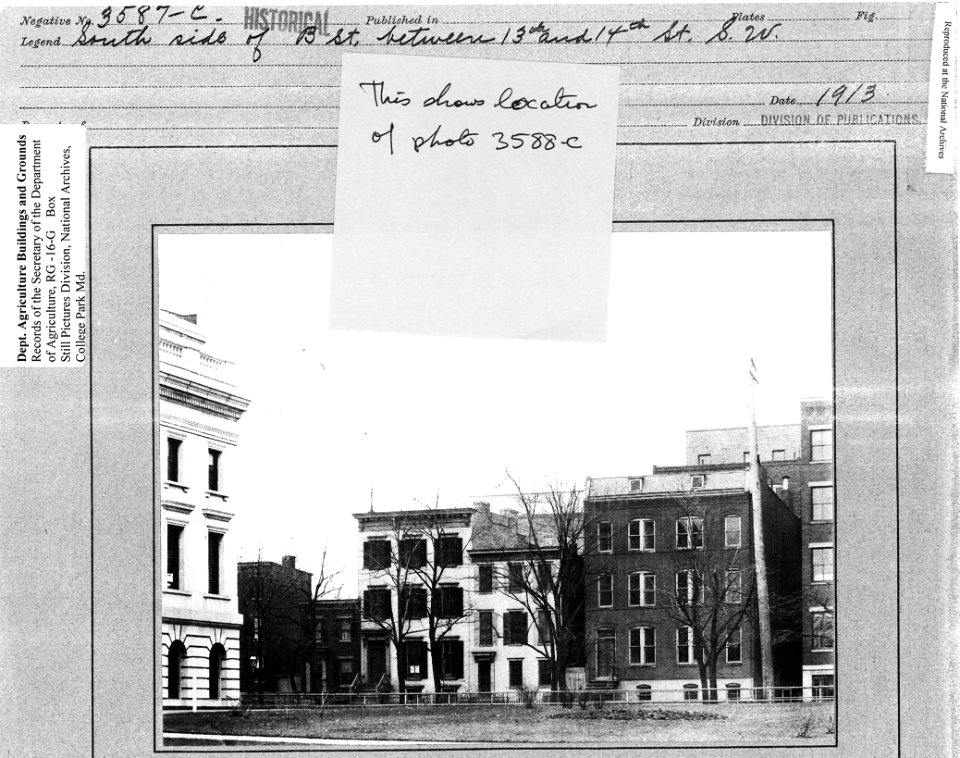 Negative No. 3587-C.
HISTORICAL
Published in
Plates
Fig.
Legend South side of B St. between 13th and 14th St. S. W.
Date 1913.
Division DIVISION OF PUBLICATIONS.
This shows location
of photo 3588-c
Reproduced at the National Archives
Dept. Agriculture Buildings and Grounds
Records of the Secretary of the Department
of Agriculture, RG -16-G Box
Still Pictures Division, National Archives,
College Park Md.